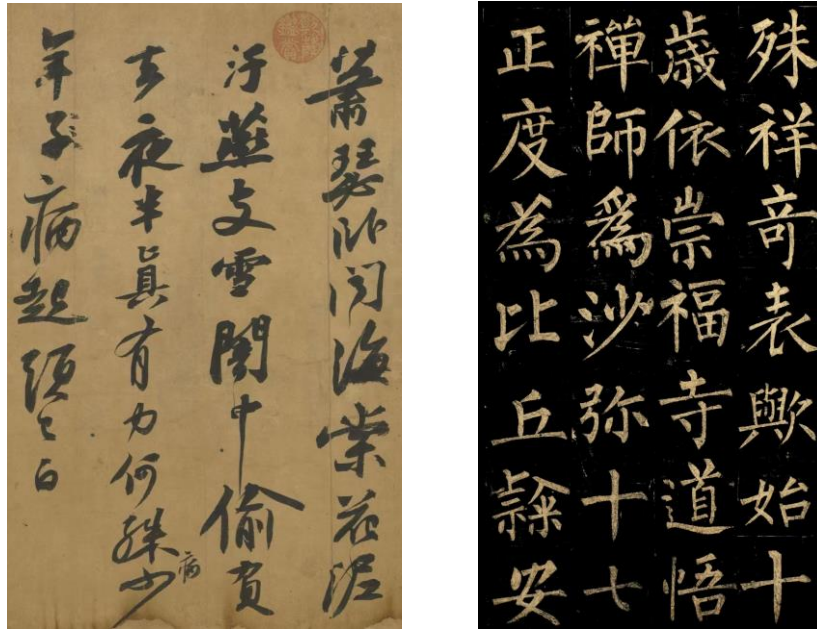 蕭瑟卧聞海棠花泥
汙燕支雪闇中偷負
去夜半真有力何殊少
病
年子病起頭已白
殊祥奇表歟始十
歲依崇福寺道悟
禪師為沙弥十七
正度為比丘隸安